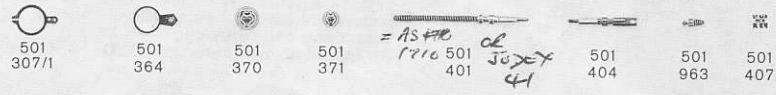 501
307/1
501
364
501
370
501
371
= AS
1910 501 OR
401
41
501
404
501
963
501
407